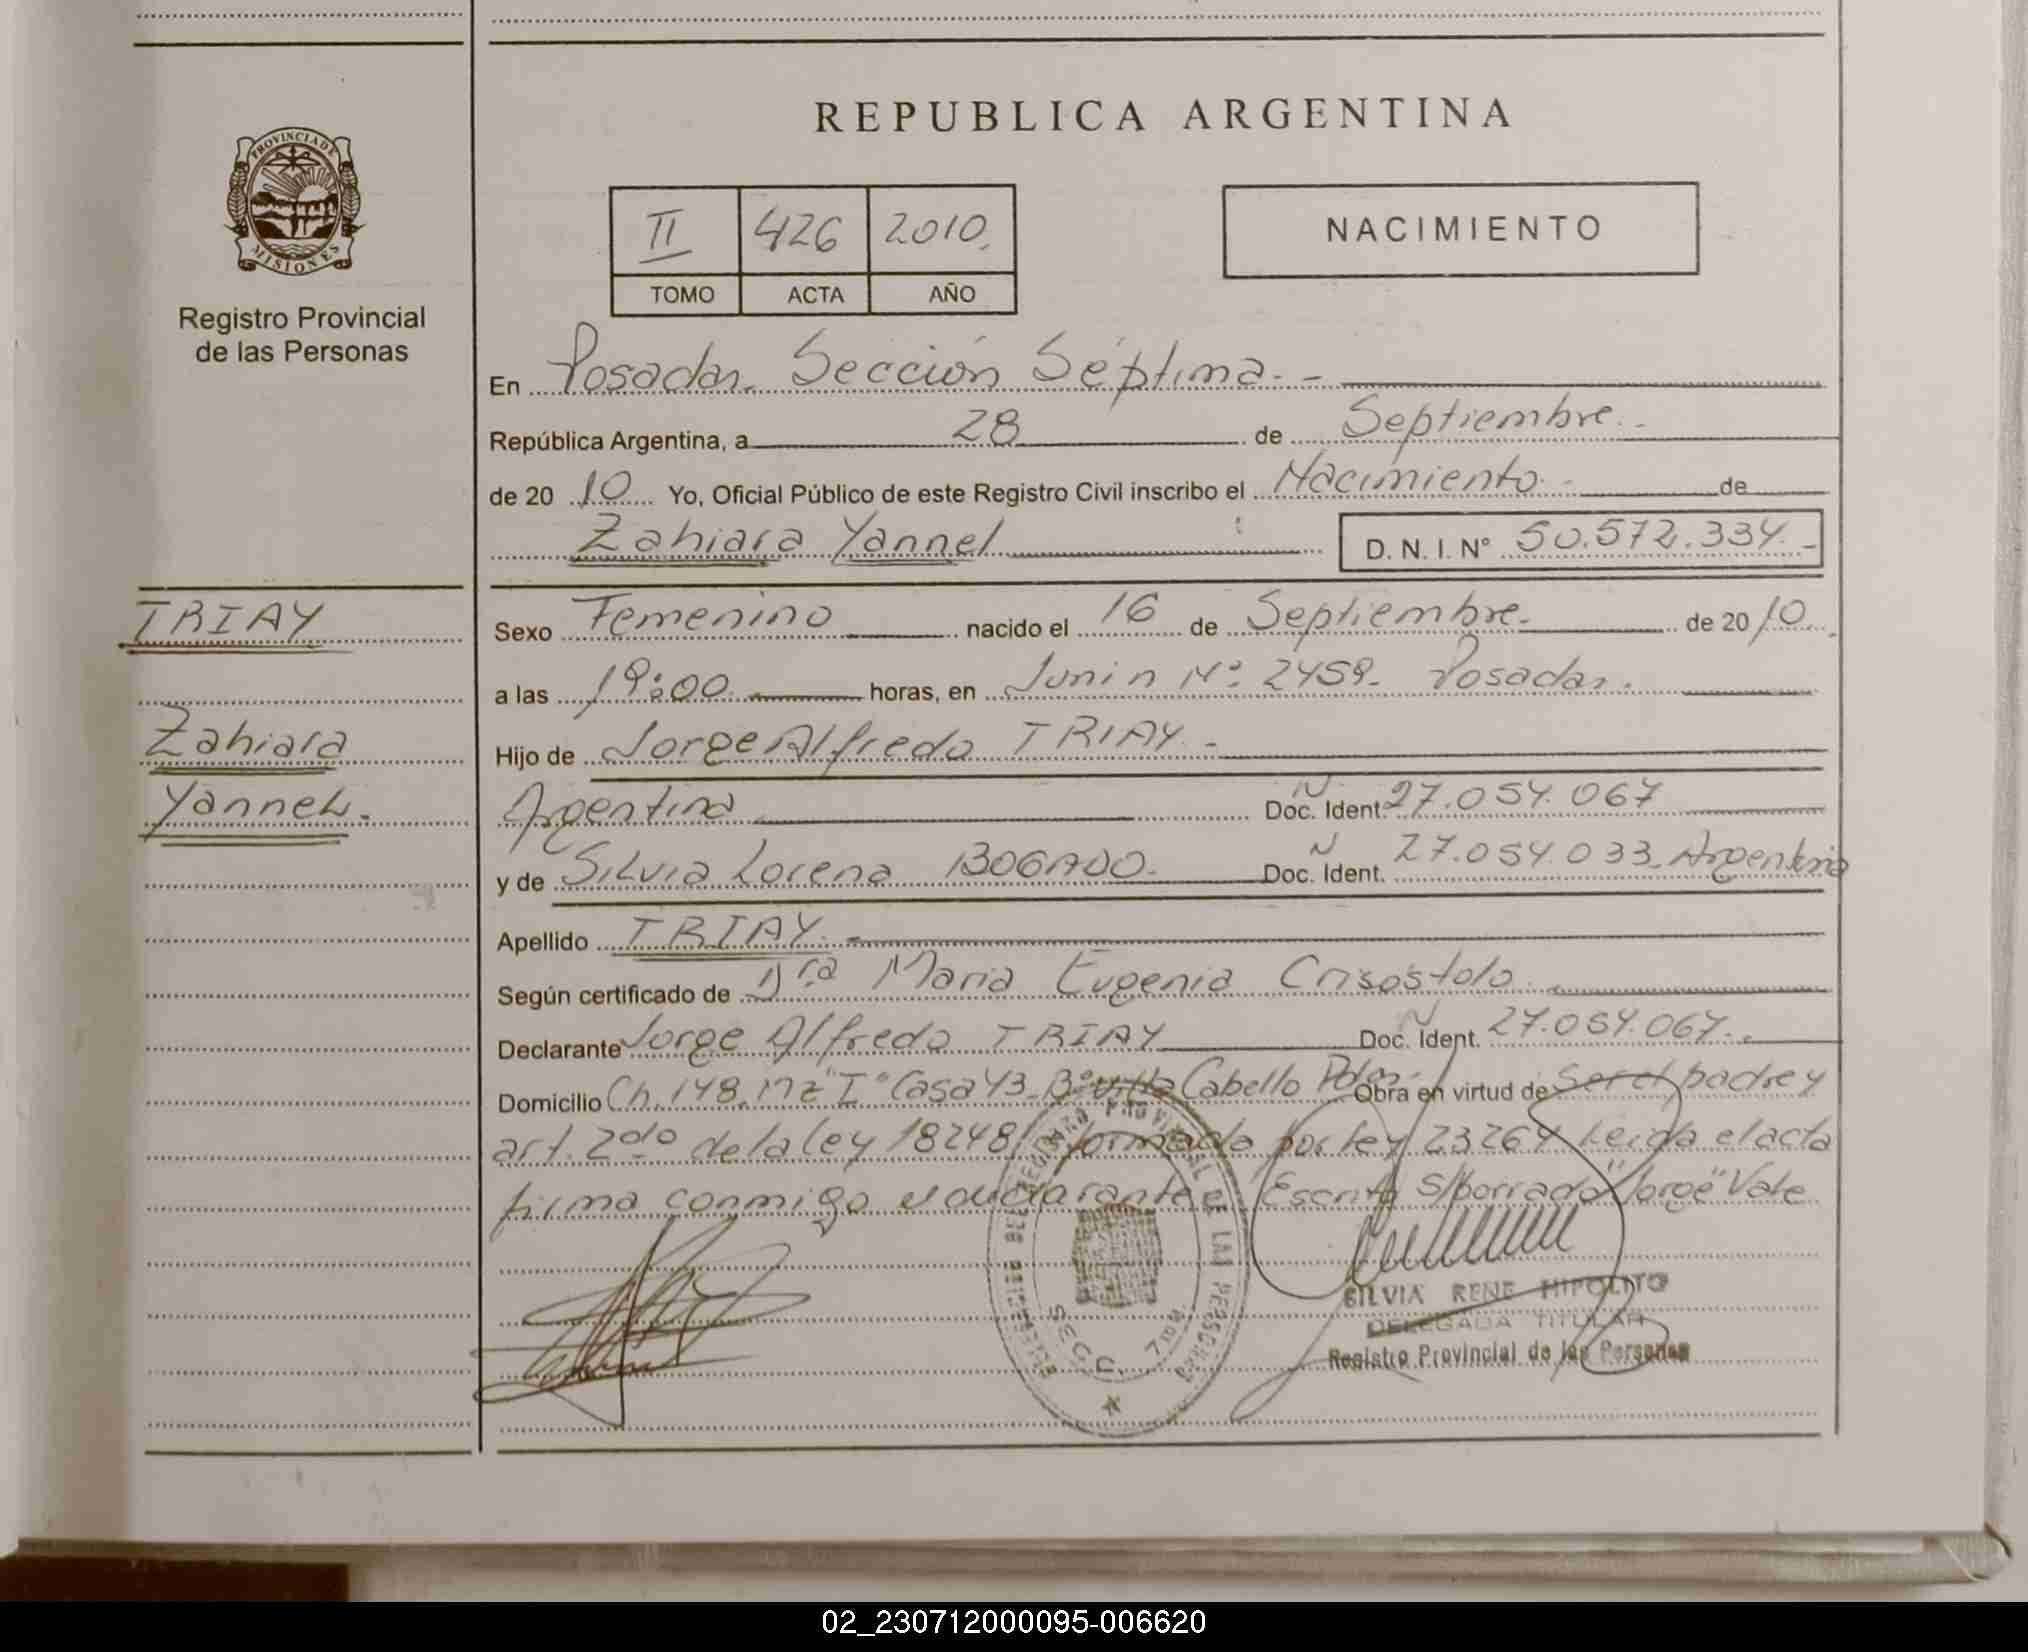 REPUBLICA ARGENTINA
PROVINCIA DE
MISIONES
Registro Provincial
de las Personas
II 426 2010
TOMO ACTA AÑO
NACIMIENTO
En Posadas. Sección Séptima. -
República Argentina, a 28 de Septiembre.
de 20 10 Yo, Oficial Público de este Registro Civil inscribo el Nacimiento de
Zahiara Yannel D. N. I. Nº 50.572.334.-
TRIAY
Zahiara
Yannel.
Sexo Femenino nacido el 16 de Septiembre. de 20 10.
a las 19:00 horas, en Junin Nº: 2459. Posadas.
Hijo de Jorge Alfredo TRIAY.-
Argentina Doc. Ident. N 27.054.067
y de Silvia Lorena BOGADO. Doc. Ident. N 27.054.033 Argentina
Apellido TRIAY.-
Según certificado de Dra Maria Eugenia Crisóstolo
Declarante Jorge Alfredo TRIAY Doc. Ident. N 27.054.067.
Domicilio Ch. 148. Mz "I" Casa 43. Bº Villa Cabello Pdas. Obra en virtud de ser el padre y
art. 2do de la ley 18248 formada por ley 23264 Leida el acta
firma conmigo el declarante Escrito S/borrado "Jorge" Vale
REGISTRO PROVINCIAL DE LAS PERSONAS
SECC. 7ma
SILVIA RENE HIPOLITO
DELEGADA TITULAR
Registro Provincial de las Personas
02_230712000095-006620